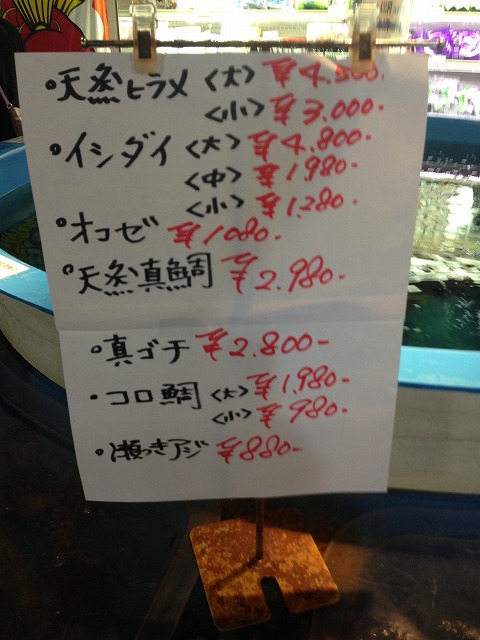 ・天然ヒラメ <大> ¥4,500-
<小> ¥3,000-
・イシダイ <大> ¥4,800-
<中> ¥1,980-
<小> ¥1,280-
・オコゼ ¥1080-
・天然真鯛 ¥2,980-
・真ゴチ ¥2,800-
・コロ鯛 <大> ¥1,980-
<小> ¥980-
・瀬つきアジ ¥880-